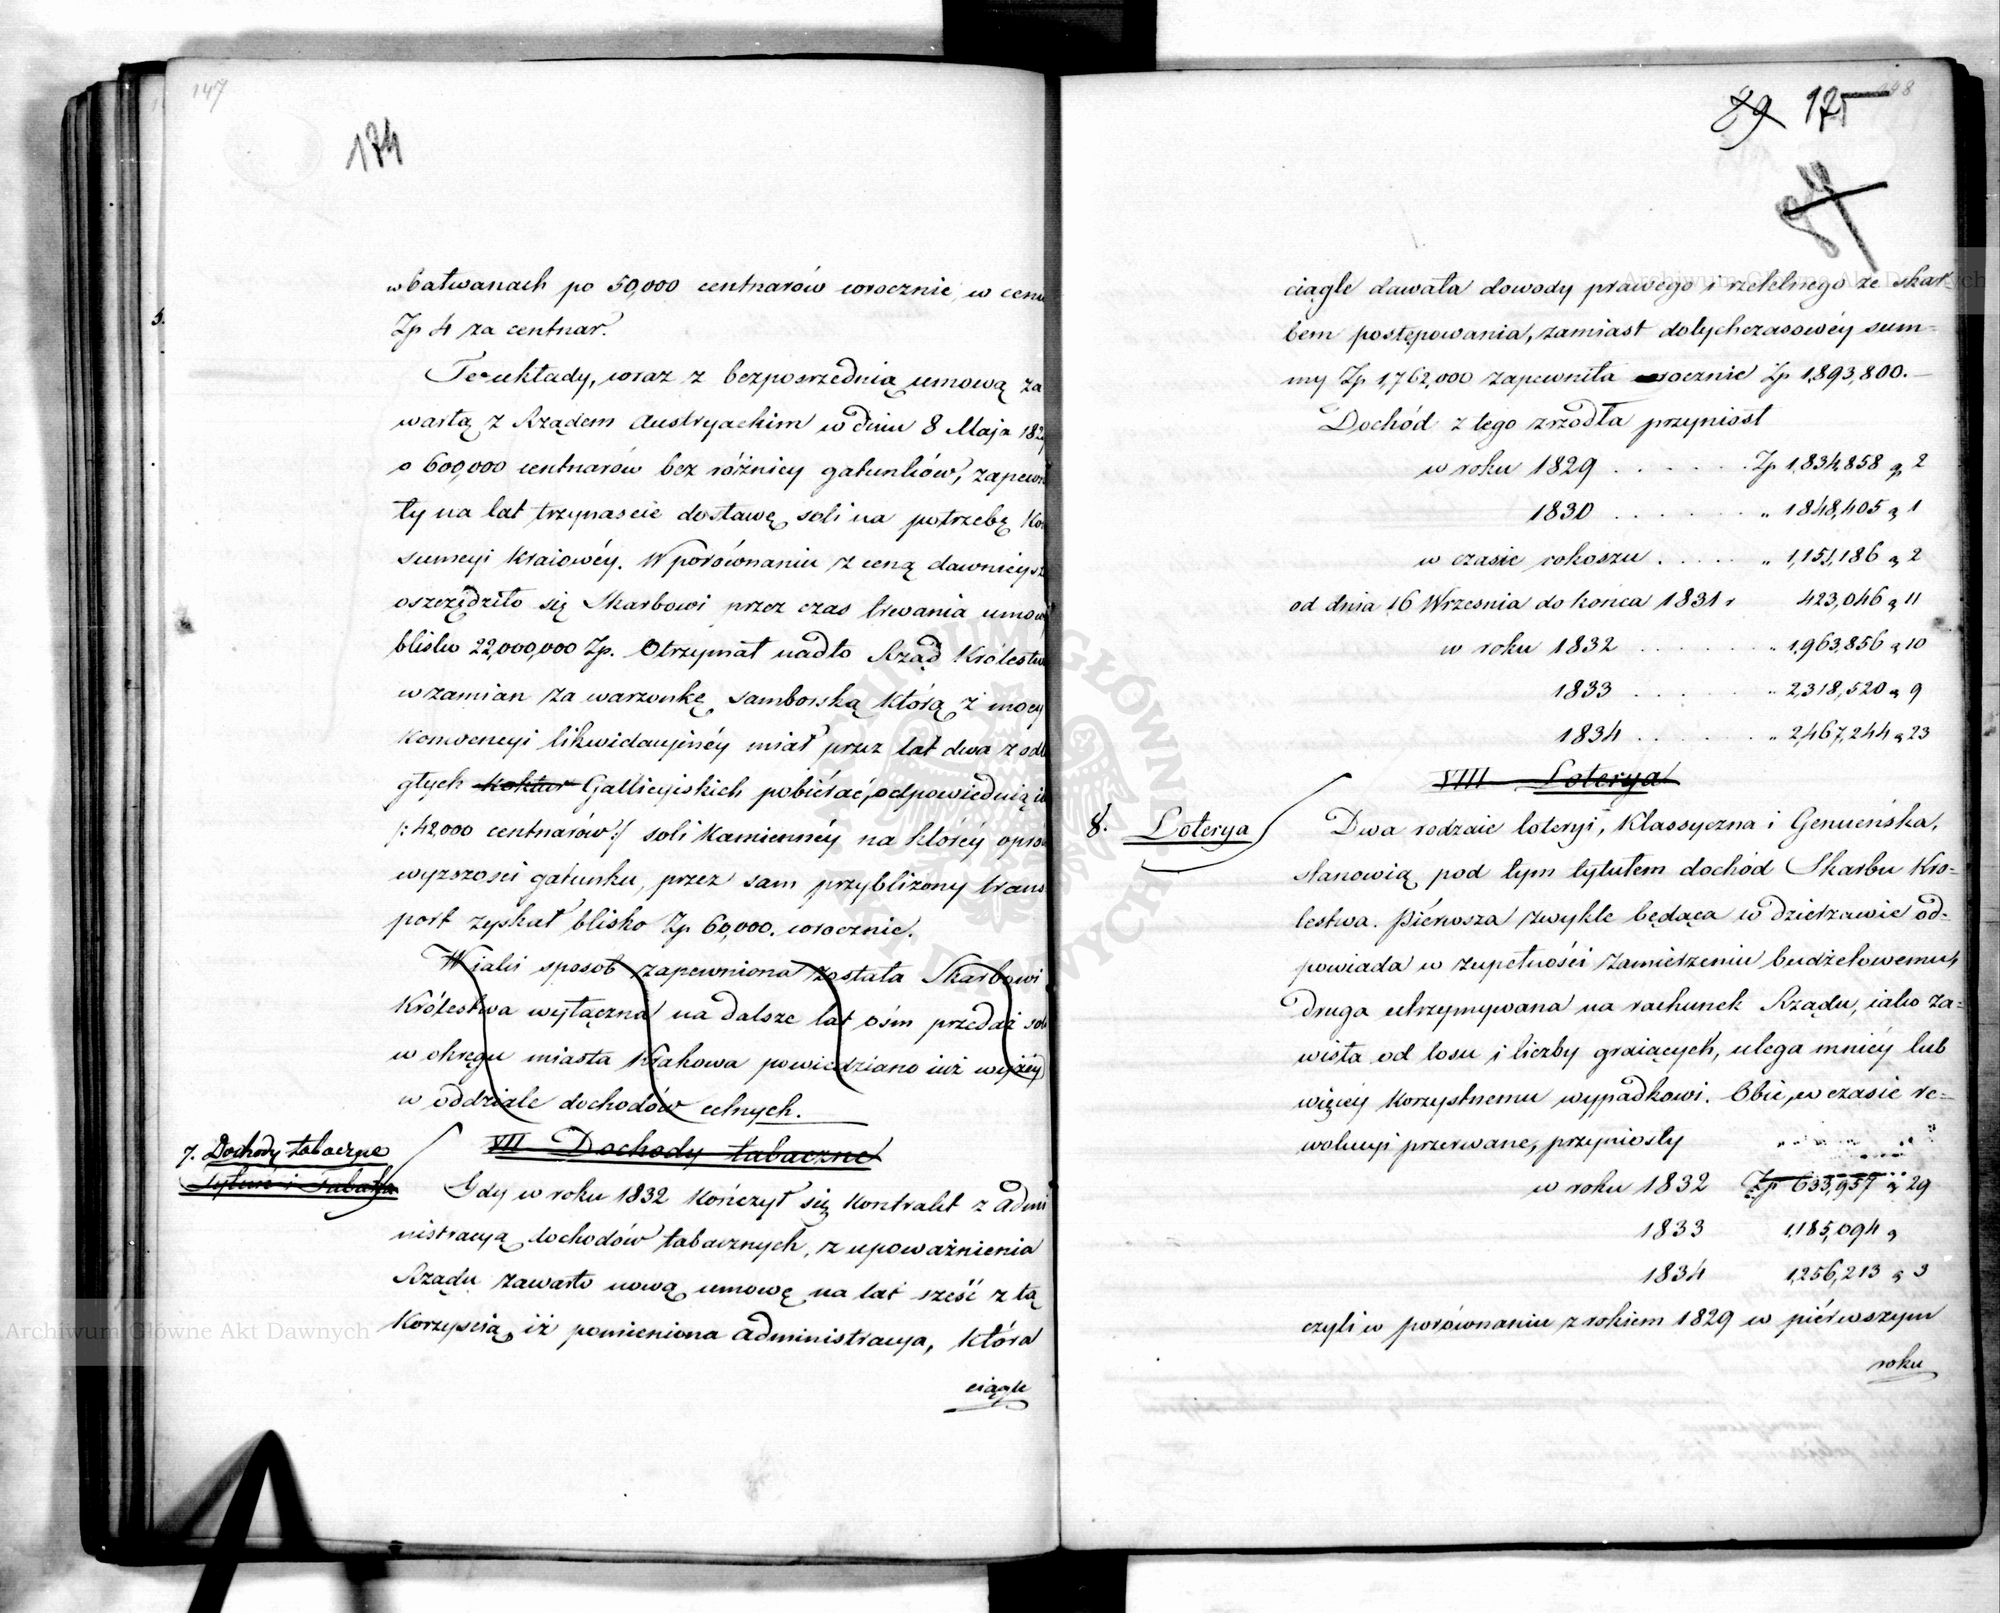 147
174
w bałwanach po 50,000 centnarów corocznie, w cenie
Zp 4 za centnar.
Te układy, wraz z bezpośrednią umową za
wartą z Rządem Austryackim w dniu 8 Maja
o 600,000 centnarów bez różnicy gatunków, zapewni
ły na lat trzynaście dostawę soli na potrzebę Kon
sumcyi Kraiowéy. W porównaniu z ceną dawnieysz
oszczędziło się Skarbowi przez czas trwania umowy
blisko 22,000,000 Zp. Otrzymał nadto Rząd Królestwa
w zamian za warzonkę samborską którą z mocy
Konwencyi likwidacyinéy miał przez lat dwa z odle
głych Koktur Gallicyiskich pobierać, odpowiednią
/: 42,000 centnarów :/ soli Kamiennéy, na któréy opró
wyższości gatunku, przez sam przybliżony trans
port zyskał blisko Zp 60,000. corocznie.
W iaki sposob zapewniona została Skarbowi
Królestwa wyłączna na dalsze lat ośm przedaż soli
w okręgu miasta Krakowa powiedziano iuż wyżéy
w oddziale dochodów celnych.
7. Dochody tabaczne
Tytuń i Tabaka
VII Dochody tabaczne
Gdy w roku 1832 Kończył się Kontrakt z Admi
nistracyą dochodów tabacznych, z upoważnienia
Rządu zawarto nową umowę na lat sześć z tą
Korzyścią, iż pomieniona Administracya, która
ciągle
89 175
ciągle dawała dowody prawego i rzetelnego ze skar-
bem postępowania, zamiast dotychczasowéy sum-
my Zp 1,762,000 zapewniła rocznie Zp 1,893,800.
Dochód z tego zrzodła przyniosł
w roku 1829 . . . . . . Zp 1,834,858 g 2
1830 . . . . . . „ 1848,405 g 1
w czasie rokoszu . . . . . „ 1,151,186 g 2
od dnia 16 Września do końca 1831 r 423,046 g 11
w roku 1832 . . . . . . „ 1,963,856 g 10
1833 . . . . . . „ 2,318,520 g 9
1834 . . . . . . „ 2,467,244 g 23
VIII Loterya
8. Loterya
Dwa rodzaie loteryi, Klassyczna i Genueńska,
stanowią pod tym tytułem dochód Skarbu Kro-
lestwa. Piérwsza zwykle będąca w dzierzawie od-
powiada w zupełności zamierzeniu budżetowemu,
druga utrzymywana na rachunek Rządu, iako za-
wisła od losu i liczby graiących, ulega mniéy lub
więcéy Korzystnemu wypadkowi. Obie, w czasie re-
wolucyi przerwane, przyniosły
w roku 1832 Zp 633,957 g 29
1833 1,185,094 g
1834 1,256,213 g 3
czyli w porównaniu z rokiem 1829 w piérwszym
roku
Archiwum Główne Akt Dawnych
Archiwum Główne Akt Dawnych
ARCHIWUM GŁÓWNE AKT DAWNYCH